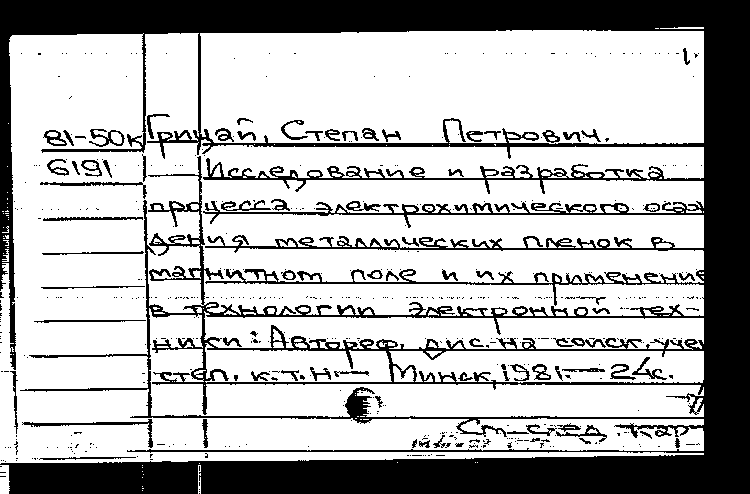 1.
81-50к Грицай, Степан Петрович.
6191 Исследование и разработка
процесса электрохимического осаж
дения металлических пленок в
магнитном поле и их применение
в технологии электронной тех-
ники: Автореф. дис. на соиск. учен
степ. к.т.н. — Минск, 1981. — 24с.
См. след. карт